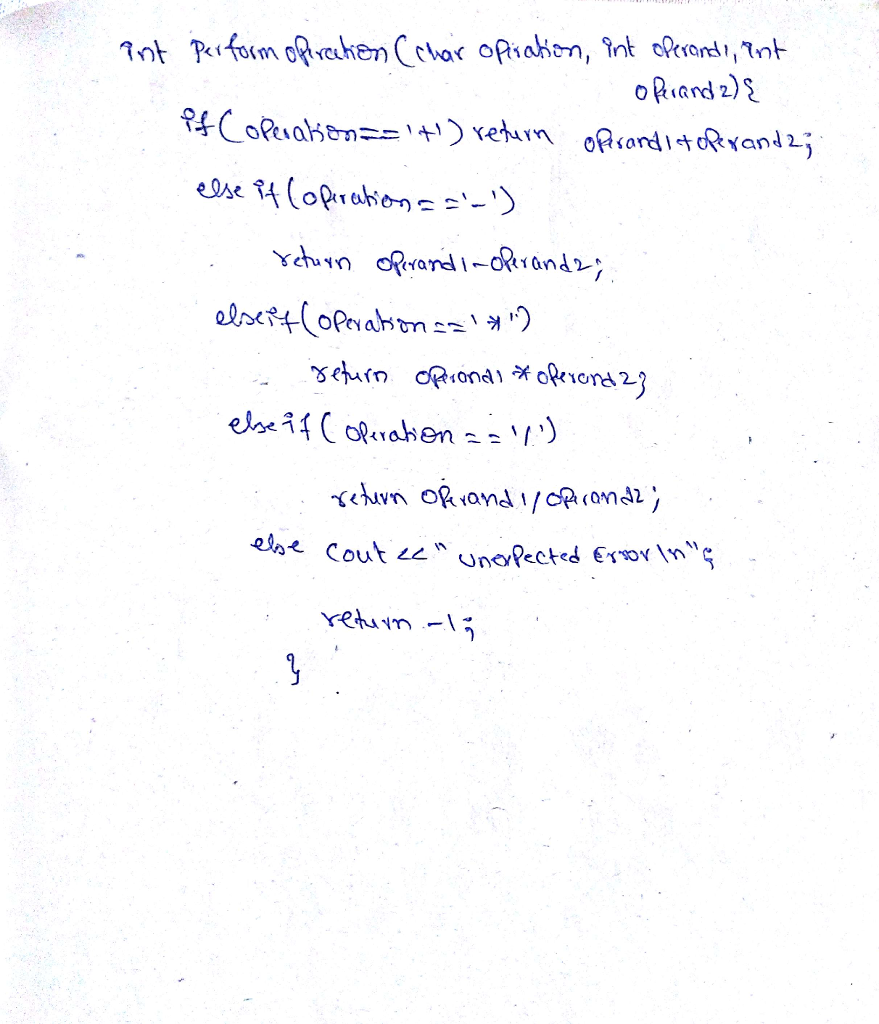 int Perform operation (char operation, int operand1, int
operand2){
if (operation=='+') return operand1+operand2;
else if (operation=='-')
return operand1-operand2;
else if (operation=='*')
return operand1 * operand2;
else if (operation=='/')
return operand1/operand2;
else cout <<" unexpected Error \n";
return -1;
}